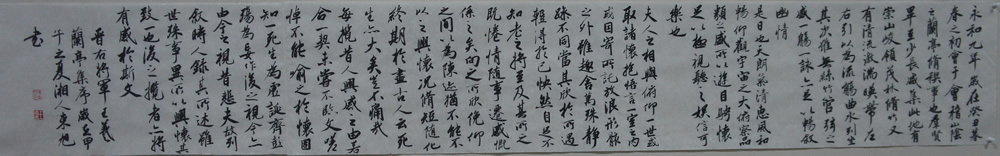 永和九年歲在癸丑暮
春之初會于會稽山陰
之蘭亭脩禊事也羣賢
畢至少長咸集此地有
崇山峻領茂林脩竹又
有清流激湍暎帶左
右引以為流觴曲水列坐
其次雖無絲竹管弦之
盛一觴一詠亦足以暢敘
幽情
是日也天朗氣清惠風和
暢仰觀宇宙之大俯察品
類之盛所以遊目騁懷
足以極視聽之娛信可
樂也
夫人之相與俯仰一世或
取諸懷抱悟言一室之內
或因寄所託放浪形骸
之外雖趣舍萬殊靜
躁不同當其欣於所遇
蹔得於己怏然自足不
知老之將至及其所之
既惓情隨事遷感慨
係之矣向之所欣俛仰
之間以為陳迹猶不能不
以之興懷況脩短隨化
終期於盡古人云死
生亦大矣豈不痛哉
每攬昔人興感之由若
合一契未嘗不臨文嗟
悼不能喻之於懷固
知一死生為虛誕齊彭
殤為妄作後之視今亦
由今之視昔悲夫故列
敘時人錄其所述雖
世殊事異所以興懷其
致一也後之攬者亦將
有感於斯文
晉右將軍王羲之
蘭亭集序歲甲
午之夏湘人東旭
書